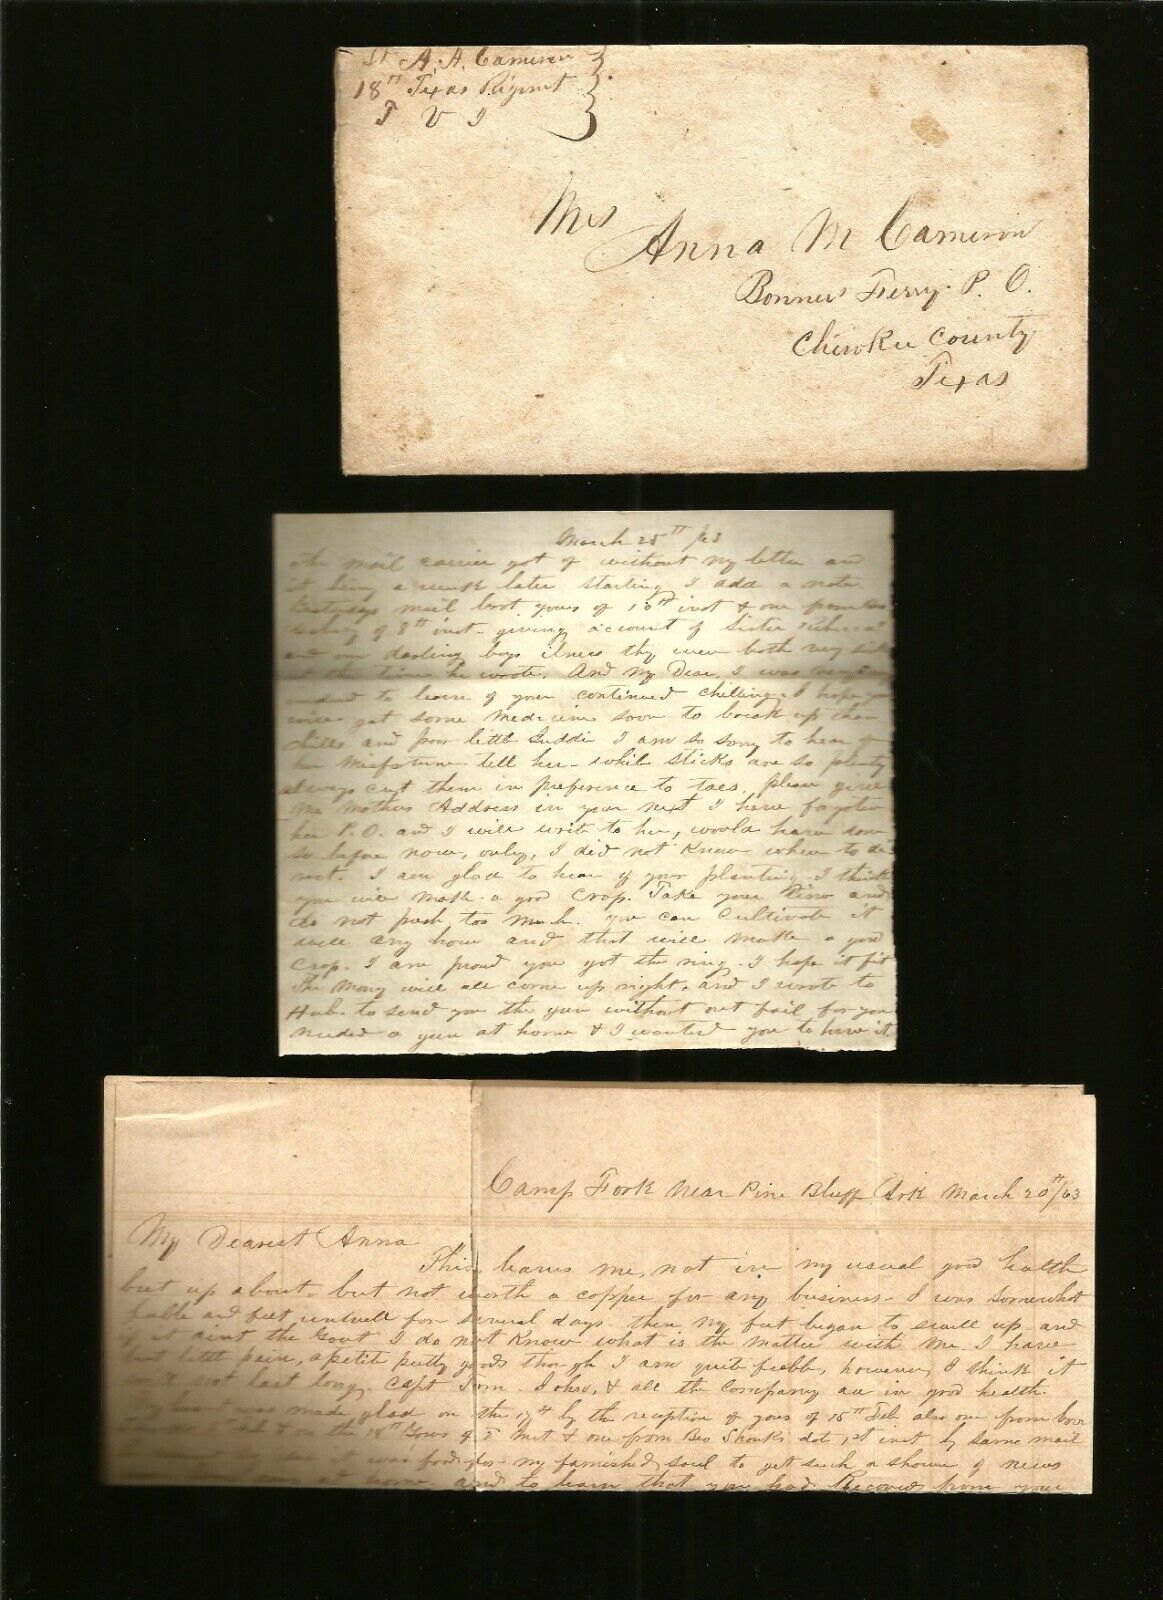 A. A. Cameron
18th Texas Regiment
T V I
Mrs Anna M Cameron
Bonners Ferry P. O.
Cherokee County
Texas
March 25th /63
The mail carrier got of without my letter and
it being a week later starting I add a note.
Yesterdays mail brot yours of 10th inst & one from
of 8th inst - giving account of Sister Rebecca
and our darling boys ilness they were both very sick
at the time he wrote. And My Dear, I was very
to learn of your continued chilling. I hope you
will get some Medicine soon to break up them
chills and poor little Guddie I am so sorry to hear of
her Misfortune tell her - while sticks are so plenty
always cut them in preference to toes. please give
me Mothers Address in your next I have forgoten
her P.O. and I will write to her, would have done
so before now, only, I did not Know where to di
rect. I am glad to hear of your planting. I think
you will make a good crop. Take your time and
do not push too much. you can Cultivate it
well any how and that will make a good
crop. I am proud you got the ring. I hope it fit
The Mony will all come up right. and I wrote to
Hub. to send you the gun without out fail for you
needed a gun at home & I wanted you to have it
Camp Fork Near Pine Bluff Ark March 20th/63
My Dearest Anna
This leaves me, not in my usual good health
but up about - but not worth a copper for any business - I was somewhat
feeble and felt unwell for several days then my feet began to swell up and
if it aint the Gout I do not Know what is the matter with me. I have
but little pain, apetite pretty good though I am quite feeble, however, I think it
will not last long. Capt Tom. & all the Company are in good health.
My heart was made glad on the 17th by the reception of yours of 15th Feb. also one from
& on the 18th yours of 5th inst & one from Bro date, 1st inst by same mail
it was food for my famished soul to get such a shower of news
at home. and to learn that you had Recoverd from your